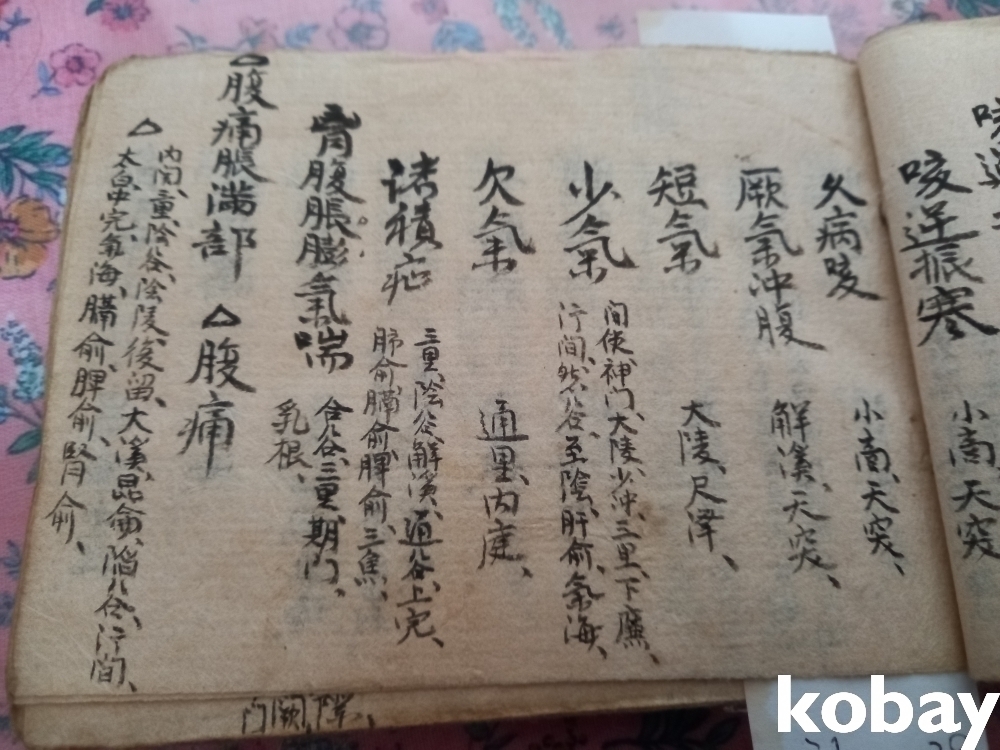 咳逆振寒
小商、天突
久病咳
小商、天突、
厥氣冲腹
解溪、天突、
短氣
大陵、尺澤、
少氣
间使、神门、大陵、少冲、三里、下廉、
行间、然谷、至陰、肝俞、氣海、
欠氣
通里、内庭、
諸積
三里、陰谷、解溪、通谷、上完、
肺俞、膈俞、脾俞、三焦、
胃腹脹膨氣喘
合谷、三里、期门、
乳根、
△腹痛脹满部
△腹痛
△
内関、三里、陰谷、陰陵、後留、大溪、昆侖、陷谷、行间、
太白、中完、氣海、膈俞、脾俞、腎俞、
kobay